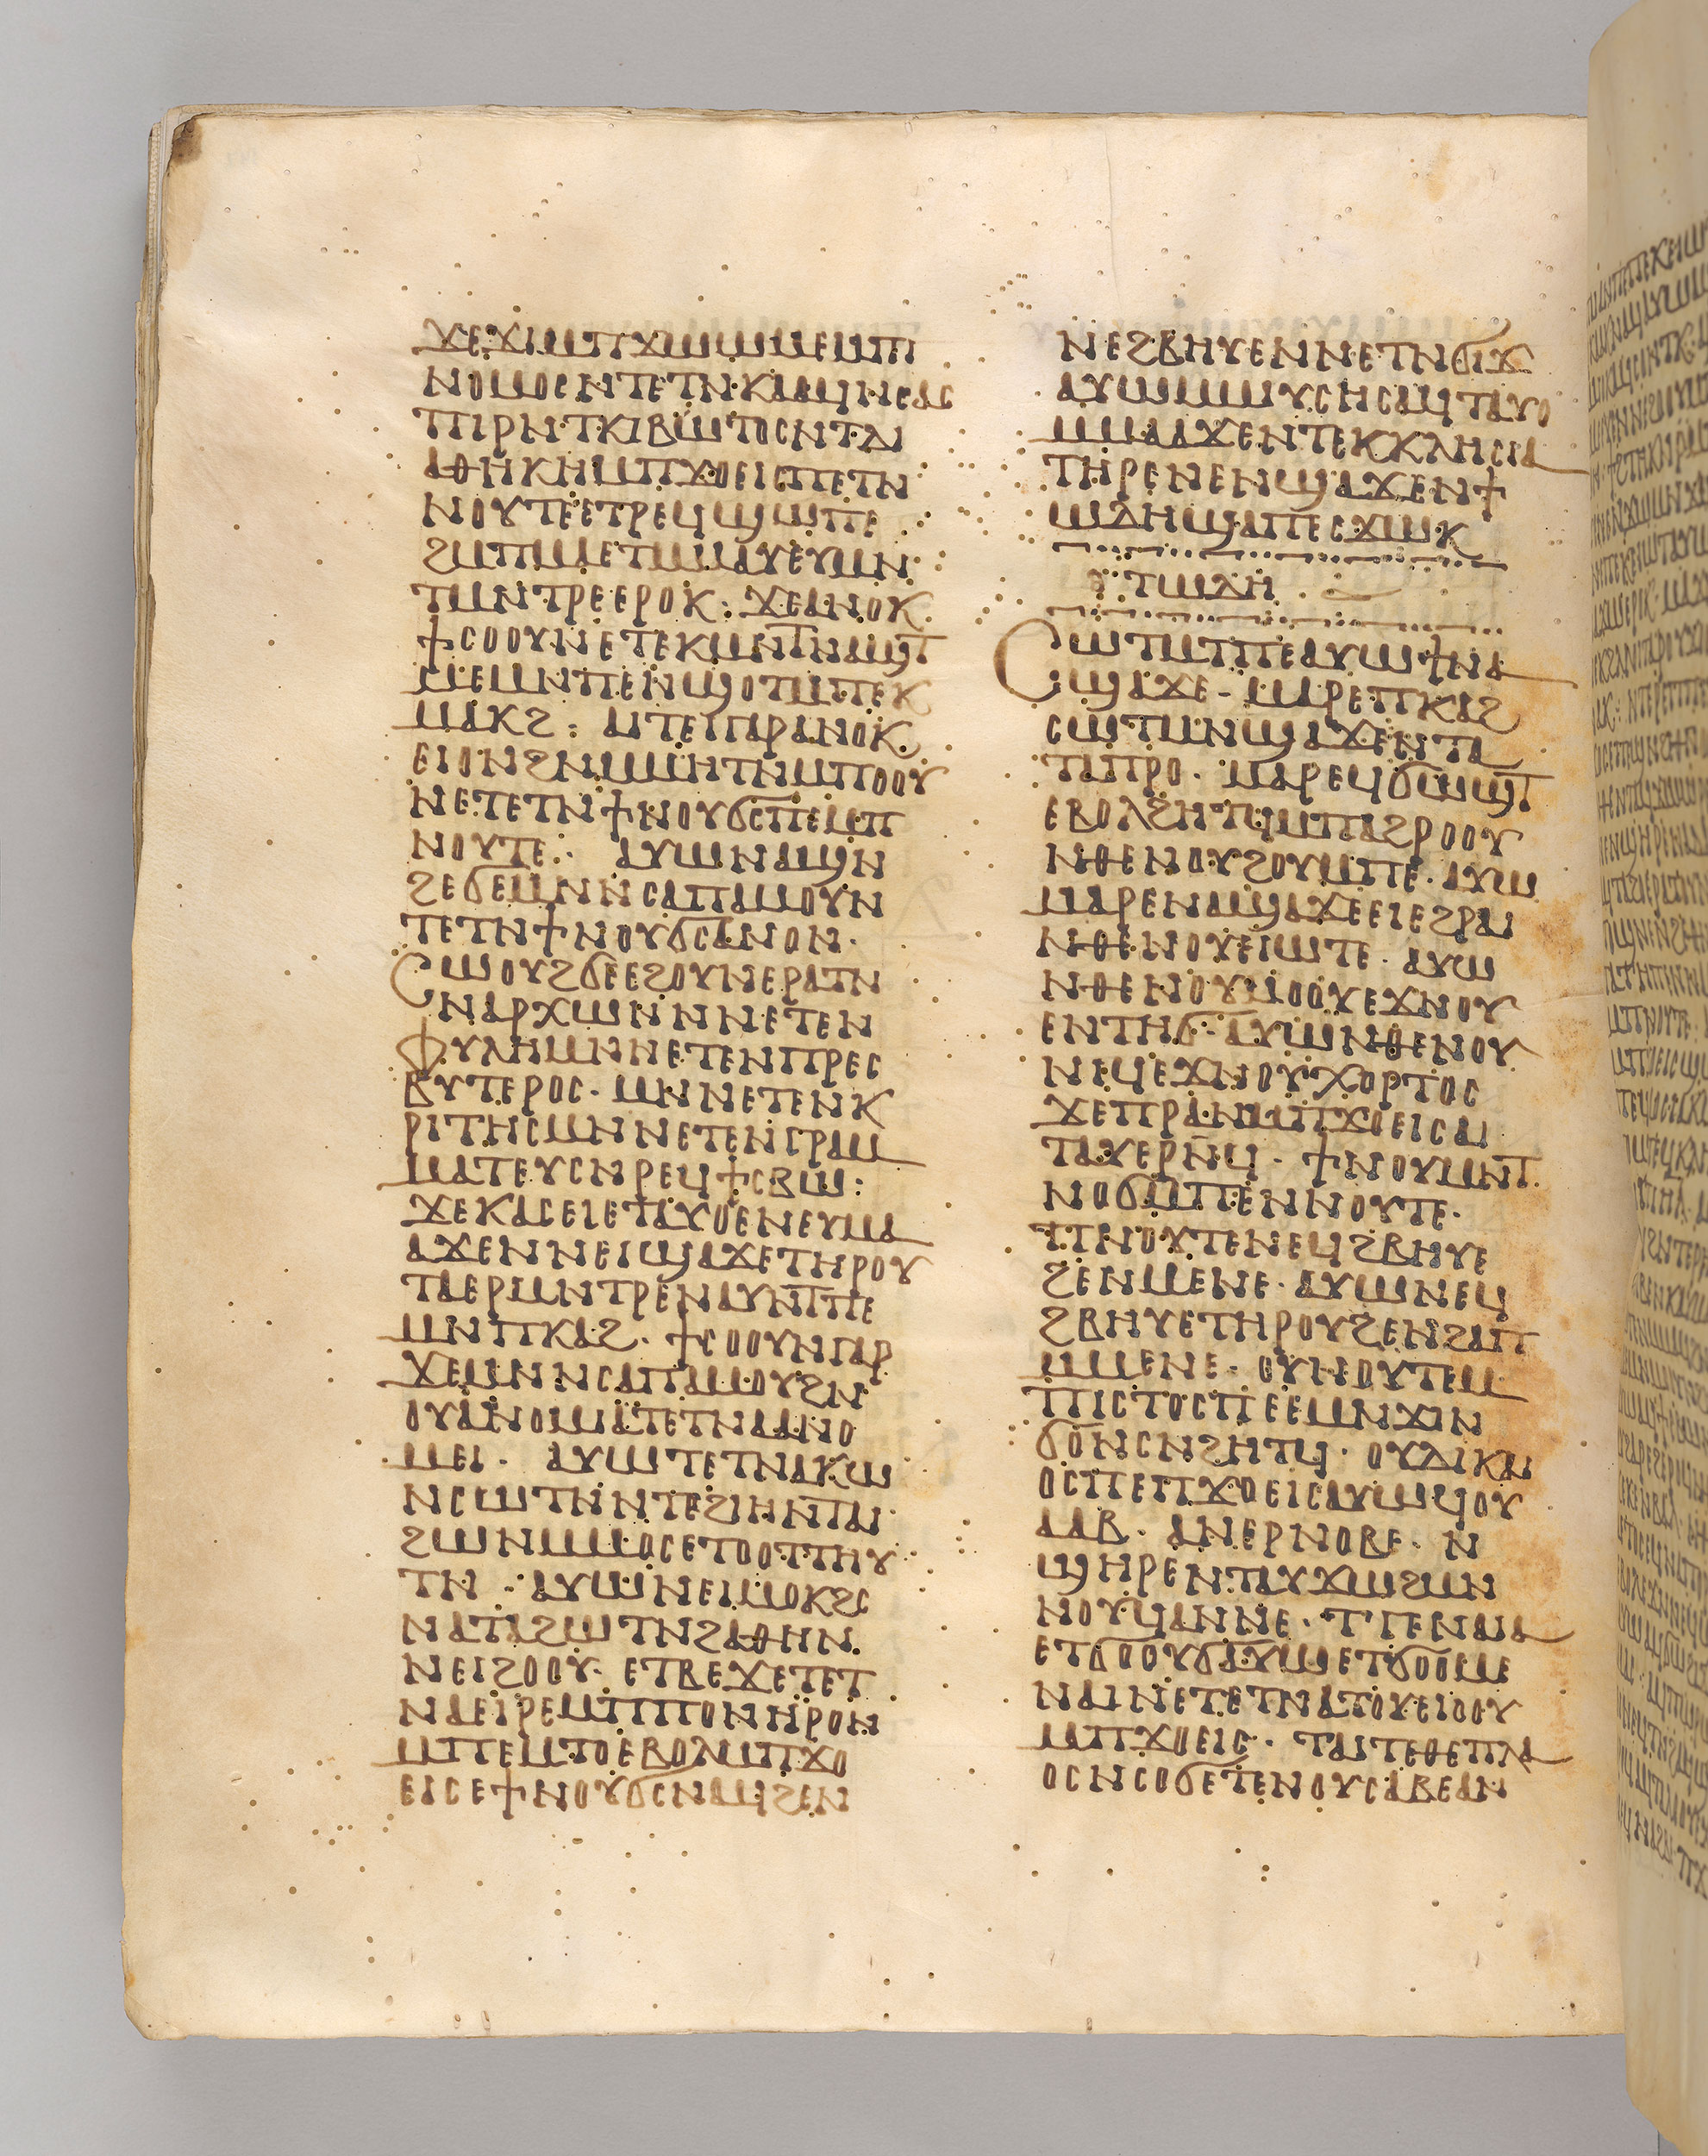 ϫⲉϫⲓⲙⲡϫⲱⲱⲙⲉⲙⲡⲓ
ⲛⲟⲙⲟⲥⲛⲧⲉⲧⲛⲕⲁⲁϥⲛⲥⲁⲥ
ⲡⲓⲣⲛⲧⲕⲓⲃⲱⲧⲟⲥⲛⲧⲇⲓ
ⲁⲑⲏⲕⲏⲙⲡϫⲟⲉⲓⲥⲡⲉⲧⲛ
ⲛⲟⲩⲧⲉⲉⲧⲣⲉϥϣⲱⲡⲉ
ϩⲙⲡⲙⲉⲧⲙⲙⲁⲩⲉⲩⲙⲛ
ⲧⲙⲛⲧⲣⲉⲉⲣⲟⲕ: ϫⲉⲁⲛⲟⲕ
ϯⲥⲟⲟⲩⲛⲉⲧⲉⲕⲙⲛⲧⲛⲁϣⲧ
ⲙⲉⲙⲛⲡⲉⲛϣⲟⲧⲙⲡⲉⲕ
ⲙⲁⲕϩ: ⲁⲓⲧⲉⲓⲅⲁⲣⲁⲛⲟⲕ
ⲉⲓⲟⲛϩⲛⲙⲙⲏⲧⲛⲙⲡⲟⲟⲩ
ⲛⲉⲧⲉⲧⲛϯⲛⲟⲩϭⲥⲡⲉⲙⲡ
ⲛⲟⲩⲧⲉ: ⲁⲩⲱⲛⲁϣⲛ
ϩⲉϭⲉⲙⲛⲛⲥⲁⲡⲁⲙⲟⲩⲛ
ⲧⲉⲧⲛϯⲛⲟⲩϭⲥⲁⲛⲟⲛ·
Ⲥⲱⲟⲩϩϭⲉⲉϩⲟⲩⲛⲉⲣⲁⲧⲛ
ⲛⲁⲣⲭⲱⲛⲛⲛⲉⲧⲉⲛ
ⲫⲩⲗⲏⲙⲛⲛⲉⲧⲉⲛⲡⲣⲉⲥ
ⲃⲩⲧⲉⲣⲟⲥ· ⲙⲛⲛⲉⲧⲉⲛⲕ
ⲣⲓⲧⲏⲥⲙⲛⲛⲉⲧⲉⲛⲅⲣⲁⲙ
ⲙⲁⲧⲉⲩⲥⲛⲣⲉϥϯⲥⲃⲱ:
ϫⲉⲕⲁⲥⲉⲓⲉⲧⲁⲩⲟⲉⲛⲉⲩⲙⲁ
ⲁϫⲉⲛⲛⲉⲓϣⲁϫⲉⲧⲏⲣⲟⲩ
ⲧⲁⲉⲣⲙⲛⲧⲣⲉⲛⲁⲩⲛⲧⲡⲉ
ⲙⲛⲡⲕⲁϩ· ϯⲥⲟⲟⲩⲛⲅⲁⲣ
ϫⲉⲙⲛⲛⲥⲁⲡⲁⲙⲟⲩϩⲛ
ⲟⲩⲁⲛⲟⲙⲓⲁⲧⲉⲧⲛⲁⲁⲛⲟ
ⲙⲉⲓ· ⲁⲩⲱⲧⲉⲧⲛⲁⲕⲱ
ⲛⲥⲱⲧⲛⲛⲧⲉϩⲓⲏⲛⲧⲁⲓ
ϩⲱⲛⲙⲙⲟⲥⲉⲧⲟⲟⲧⲧⲏⲩ
ⲧⲛ ·· ⲁⲩⲱⲛⲉⲓⲙⲟⲕϩⲥ
ⲛⲁⲧⲁϩⲱⲧⲛϩⲁⲑⲏⲛ
ⲛⲉⲓϩⲟⲟⲩ· ⲉⲧⲃⲉϫⲉⲧⲉⲧ
ⲛⲁⲉⲓⲣⲉⲙⲡⲡⲟⲛⲏⲣⲟⲛ
ⲙⲡⲉⲙⲧⲟⲉⲃⲟⲗⲙⲡϫⲟ
ⲉⲓⲥⲉϯⲛⲟⲩϭⲥⲛⲁϥϩⲉⲛ
ⲛⲉϩⲃⲏⲩⲉⲛⲛⲉⲧⲛϭⲓϫ
ⲁⲩⲱⲙⲱⲩⲥⲏⲥⲁϥⲧⲁⲩⲟ
ⲙⲙⲁⲁϫⲉⲛⲧⲉⲕⲕⲗⲏⲥⲓⲁ
ⲧⲏⲣⲉⲛⲉⲛϣⲁϫⲉⲛϯ
ⲱⲇⲏϣⲁⲡⲉⲥϫⲱⲕ
ⲧⲱⲇⲏ
Ⲥⲱⲧⲙⲧⲡⲉⲁⲩⲱϯⲛⲁ
ϣⲁϫⲉ- ⲙⲁⲣⲉⲡⲕⲁϩ
ⲥⲱⲧⲙⲛϣⲁϫⲉⲛⲧⲁ
ⲧⲁⲡⲣⲟ· ⲙⲁⲣⲉϥϭⲱϣⲧ
ⲉⲃⲟⲗϩⲏⲧϥⲙⲡⲁϩⲣⲟⲟⲩ
ⲛⲑⲉⲛⲟⲩϩⲟⲩⲙⲡⲉ· ⲁⲩⲱ
ⲙⲁⲣⲉⲛⲁϣⲁϫⲉⲉⲓⲉϩⲣⲁⲓ
ⲛⲑⲉⲛⲟⲩⲉⲓⲱⲧⲉ· ⲁⲩⲱ
ⲛⲑⲉⲛⲟⲩⲙⲟⲟⲩⲉϫⲛⲟⲩ
ⲉⲛⲧⲏϭ· ⲁⲩⲱⲛⲑⲉⲛⲟⲩ
ⲛⲓϥⲉϫⲛⲟⲩⲭⲟⲣⲧⲟⲥ
ϫⲉⲡⲣⲁⲛⲙⲡϫⲟⲉⲓⲥⲁⲓ
ⲧⲁⲩⲉⲣⲛϥ· ϯⲛⲟⲩⲙⲛⲧ
ⲛⲟϭⲙⲡⲉⲛⲛⲟⲩⲧⲉ·
ⲡⲛⲟⲩⲧⲉⲛⲉϥϩⲃⲏⲩⲉ
ϩⲉⲛⲙⲉⲛⲉ· ⲁⲩⲱⲛⲉϥ
ϩⲃⲏⲩⲉⲧⲏⲣⲟⲩϩⲉⲛϩⲁⲡ
ⲙⲙⲉⲛⲉ· ⲟⲩⲛⲟⲩⲧⲉⲙ
ⲡⲓⲥⲧⲟⲥⲡⲉⲉⲙⲛϫⲓⲛ
ϭⲟⲛⲥⲛϩⲏⲧϥ· ⲟⲩⲇⲓⲕⲁⲓ
ⲟⲥⲡⲉⲡϫⲟⲉⲓⲥⲁⲩⲱϥⲟⲩ
ⲁⲁⲃ· ⲁⲛⲉⲣⲛⲟⲃⲉ· ⲛ
ϣⲏⲣⲉⲛⲧⲁⲩϫⲱϩⲙⲛ
ⲛⲟⲩϥⲁⲛⲛⲉ· ⲧⲅⲉⲛⲉⲁ
ⲉⲧϭⲟⲟⲩϭⲁⲩⲱⲉⲧϭⲟⲟⲙⲉ
ⲛⲁⲓⲛⲉⲧⲉⲧⲛⲁⲧⲟⲩⲉⲓⲟⲟⲩ
ⲙⲡϫⲟⲉⲓⲥ· ⲧⲁⲓⲧⲉⲑⲉⲡⲗⲁ
ⲟⲥⲛⲥⲟϭⲉⲧⲉⲛⲟⲩⲥⲁⲃⲉⲁⲛ